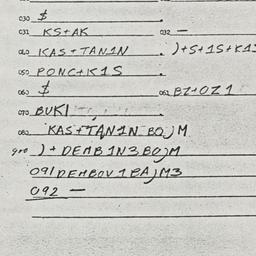 030 $
031 KS+AK 032 —
040 KAS+TAN1N . )+S+1S+KA1
050 PONC+K1S
060 $ 061 BZ+OZ1
070 BUKI
080 KAS+TAN1N BOJM
090 )+DEMB1N3BOJM
091 DEMBOV1BAJM3
092 —